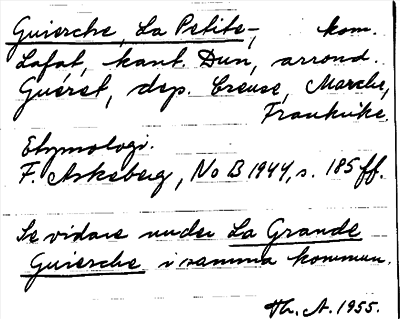 Guierche, La Petite-, kom.
Lafat, kant. Dun, arrond.
Guéret, dep. Creuse, Marche,
Frankrike.
Etymologi.
F. Askeberg, No B 1944, s. 185 ff.
Se vidare under La Grande
Guierche i samma kommun.
Th. A. 1955.